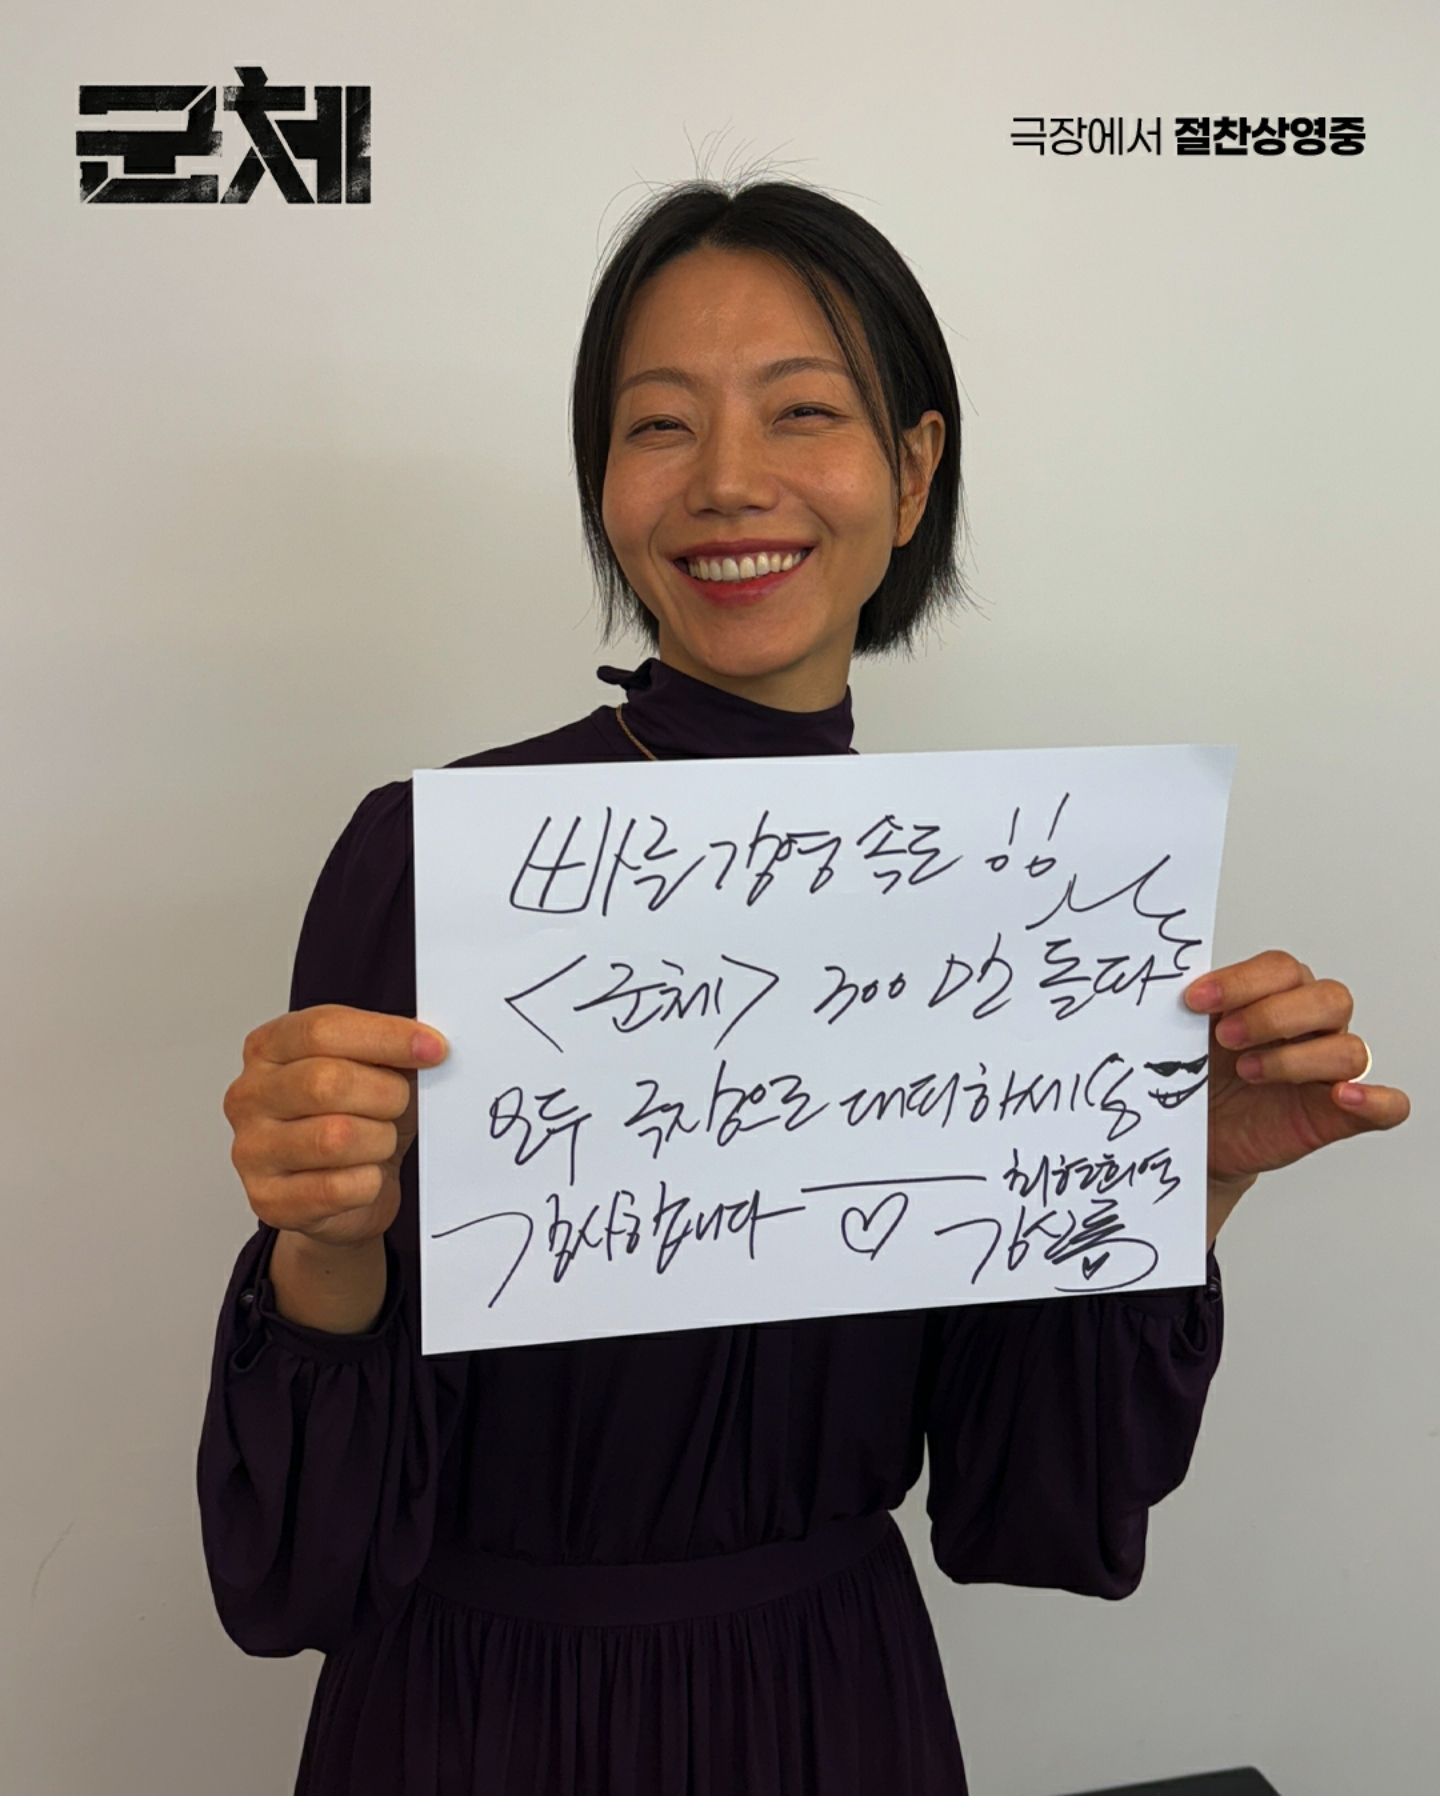 군체
극장에서 절찬상영중
빠른 감염 속도!!
<군체> 300만 돌파
모두 극장으로 대피하세용
감사합니다 ♡
최현희역
김신록